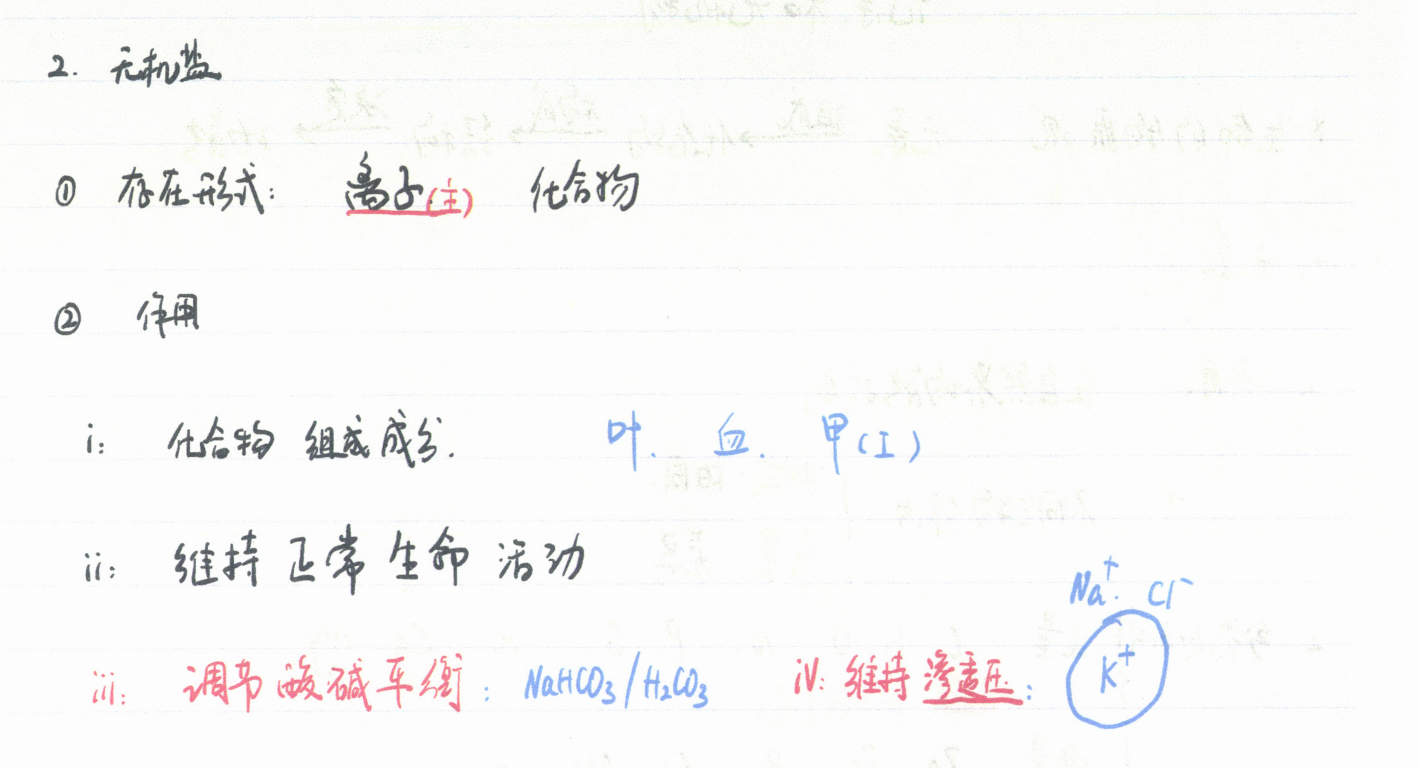 2. 无机盐
① 存在形式: 离子(主) 化合物
② 作用
i: 化合物 组成成分. 叶. 血. 甲(I)
ii: 维持正常生命活动
iii: 调节酸碱平衡: NaHCO₃/H₂CO₃ iV: 维持渗透压: Na⁺. Cl⁻ K⁺